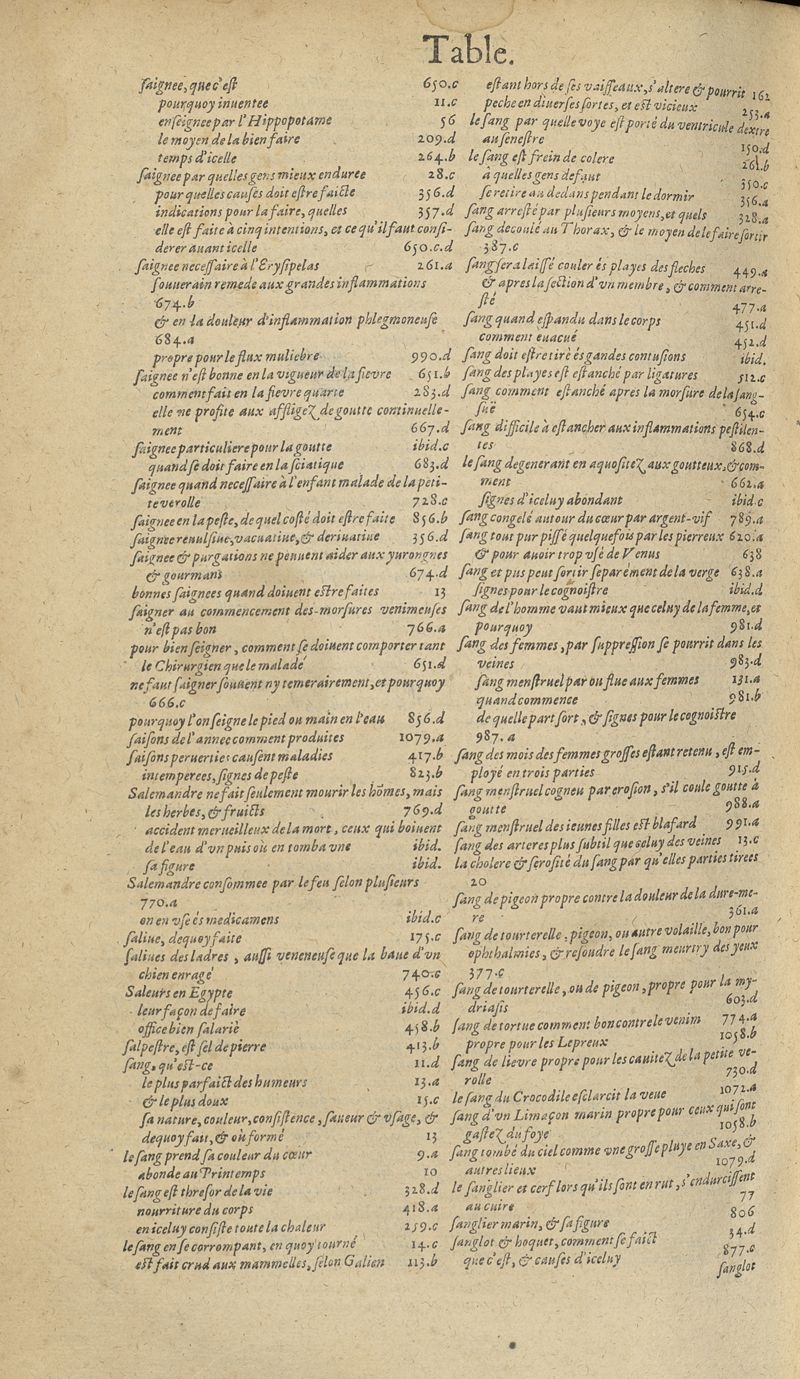 Table.
ſaignee, que c'eſt 650.c
pourquoy inuentee 11.c
enſeignee par l'Hippopotame 56
le moyen de la bien faire 209.d
temps d'icelle 264.b
ſaignee par quelles gens mieux enduree 28.c
pour quelles cauſes doit eſtre faicte 356.d
indications pour la faire, quelles 357.d
elle eſt faite à cinq intentions, et ce qu'il faut conſi-
derer auant icelle 650.c.d
ſaignee neceſſaire à l'Eryſipelas 261.a
ſouuerain remede aux grandes inflammations
674.b
& en la douleur d'inflammation phlegmoneuſe
684.a
propre pour le flux muliebre 990.d
ſaignee n'eſt bonne en la vigueur de la fievre 651.b
comment fait en la fievre quarte 283.d
elle ne profite aux affligeʒ de goutte continuelle-
ment 667.d
ſaignee particuliere pour la goutte ibid.c
quand ſe doit faire en la ſciatique 683.d
ſaignee quand neceſſaire à l'enfant malade de la peti-
te verolle 728.c
ſaignee en la peſte, de quel coſté doit eſtre faite 856.b
ſaignee reuulſiue, vacuatiue, & deriuatiue 356.d
ſaignee & purgations ne peuuent aider aux yurongnes
& gourmans 674.d
bonnes ſaignees quand doiuent eſtre faites 13
ſaigner au commencement des morſures venimeuſes
n'eſt pas bon 766.a
pour bien ſeigner, comment ſe doiuent comporter tant
le Chirurgien que le malade 651.d
ne faut ſaigner ſouuent ny temerairement, et pourquoy
666.c
pourquoy l'on ſeigne le pied ou main en l'eau 856.d
ſaiſons de l'annee comment produites 1079.a
ſaiſons peruerties cauſent maladies 417.b
intemperees, ſignes de peſte 823.b
Salemandre ne fait ſeulement mourir les hõmes, mais
les herbes, & fruicts 769.d
accident merueilleux de la mort, ceux qui boiuent
de l'eau d'vn puis où en tomba vne ibid.
ſa figure ibid.
Salemandre conſommee par le feu ſelon pluſieurs
770.a
on en vſe és medicamens ibid.c
ſaliue, dequoy faite 175.c
ſaliues des ladres, auſſi veneneuſe que la baue d'vn
chien enragé 740.c
Saleurs en Egypte 456.c
leur façon de faire ibid.d
office bien ſalarié 458.b
ſalpeſtre, eſt ſel de pierre 413.b
ſang, qu'eſt-ce 11.d
le plus parfaict des humeurs 13.a
& le plus doux 15.c
ſa nature, couleur, conſiſtence, ſaueur & vſage, &
dequoy fait, & où formé 13
le ſang prend ſa couleur du cœur 9.a
abonde au Printemps 10
le ſang eſt threſor de la vie 328.d
nourriture du corps 418.a
en iceluy conſiſte toute la chaleur 259.c
le ſang en ſe corrompant, en quoy tourné 14.c
eſt fait crud aux mammelles, ſelon Galien 113.b
eſtant hors de ſes vaiſſeaux, s'altere & pourrit 161
peche en diuerſes ſortes, et eſt vicieux 253.a
le ſang par quelle voye eſt porté du ventricule dextre
au ſeneſtre 150.d
le ſang eſt frein de colere 261.b
à quelles gens defaut 350.c
ſe retire au dedans pendant le dormir 356.a
ſang arreſté par pluſieurs moyens, et quels 328.a
ſang decoulé au Thorax, & le moyen de le faire ſortir
387.c
ſang ſera laiſſé couler és playes des fleches 449.a
& apres la ſection d'vn membre, & comment arre-
ſté 477.a
ſang quand eſpandu dans le corps 451.d
comment euacué 452.d
ſang doit eſtre tiré és gandes contuſions ibid.
ſang des playes eſt eſtanché par ligatures 512.c
ſang comment eſtanché apres la morſure de la ſang-
ſuë 654.c
ſang difficile à eſtancher aux inflammations peſtilen-
tes 868.d
le ſang degenerant en aquoſiteʒ aux goutteux, & com-
ment 662.a
ſignes d'iceluy abondant ibid.c
ſang congelé autour du cœur par argent-vif 789.a
ſang tout pur piſſé quelquefois par les pierreux 620.a
& pour auoir trop vſé de Venus 638
ſang et pus peut ſortir ſeparément de la verge 638.a
ſignes pour le cognoiſtre ibid.d
ſang de l'homme vaut mieux que celuy de la femme, et
pourquoy 981.d
ſang des femmes, par ſuppreſſion ſe pourrit dans les
veines 983.d
ſang menſtruel par ou flue aux femmes 131.a
quand commence 981.b
de quelle part ſort, & ſignes pour le cognoiſtre
987.a
ſang des mois des femmes groſſes eſtant retenu, eſt em-
ployé en trois parties 915.d
ſang menſtruel cogneu par eroſion, s'il coule goutte à
goutte 988.a
ſang menſtruel des ieunes filles eſt blafard 991.a
ſang des arteres plus ſubtil que celuy des veines 13.c
la cholere & ſeroſité du ſang par qu'elles parties tirees
20
ſang de pigeon propre contre la douleur de la dure-me-
re 361.a
ſang de tourterelle, pigeon, ou autre volaille, bon pour
ophthalmies, & reſoudre le ſang meurtry des yeux
377.c
ſang de tourterelle, ou de pigeon, propre pour la my-
driaſis 603.d
ſang de tortue comment bon contre le venim 774.a
propre pour les Lepreux 1058.b
ſang de lievre propre pour les cauiteʒ de la petite ve-
rolle 730.d
le ſang du Crocodile eſclarcit la veue 1072.a
ſang d'vn Limaçon marin propre pour ceux qui ſont
gaſteʒ du foye 1058.b
ſang tombé du ciel comme vne groſſe pluye en Saxe, &
autres lieux 1079.d
le ſanglier et cerf lors qu'ils ſont en rut, s'endurciſſent
au cuire 77
ſanglier marin, & ſa figure 806
ſanglot & hoquet, comment ſe faict 34.d
que c'eſt, & cauſes d'iceluy 877.c
ſanglot